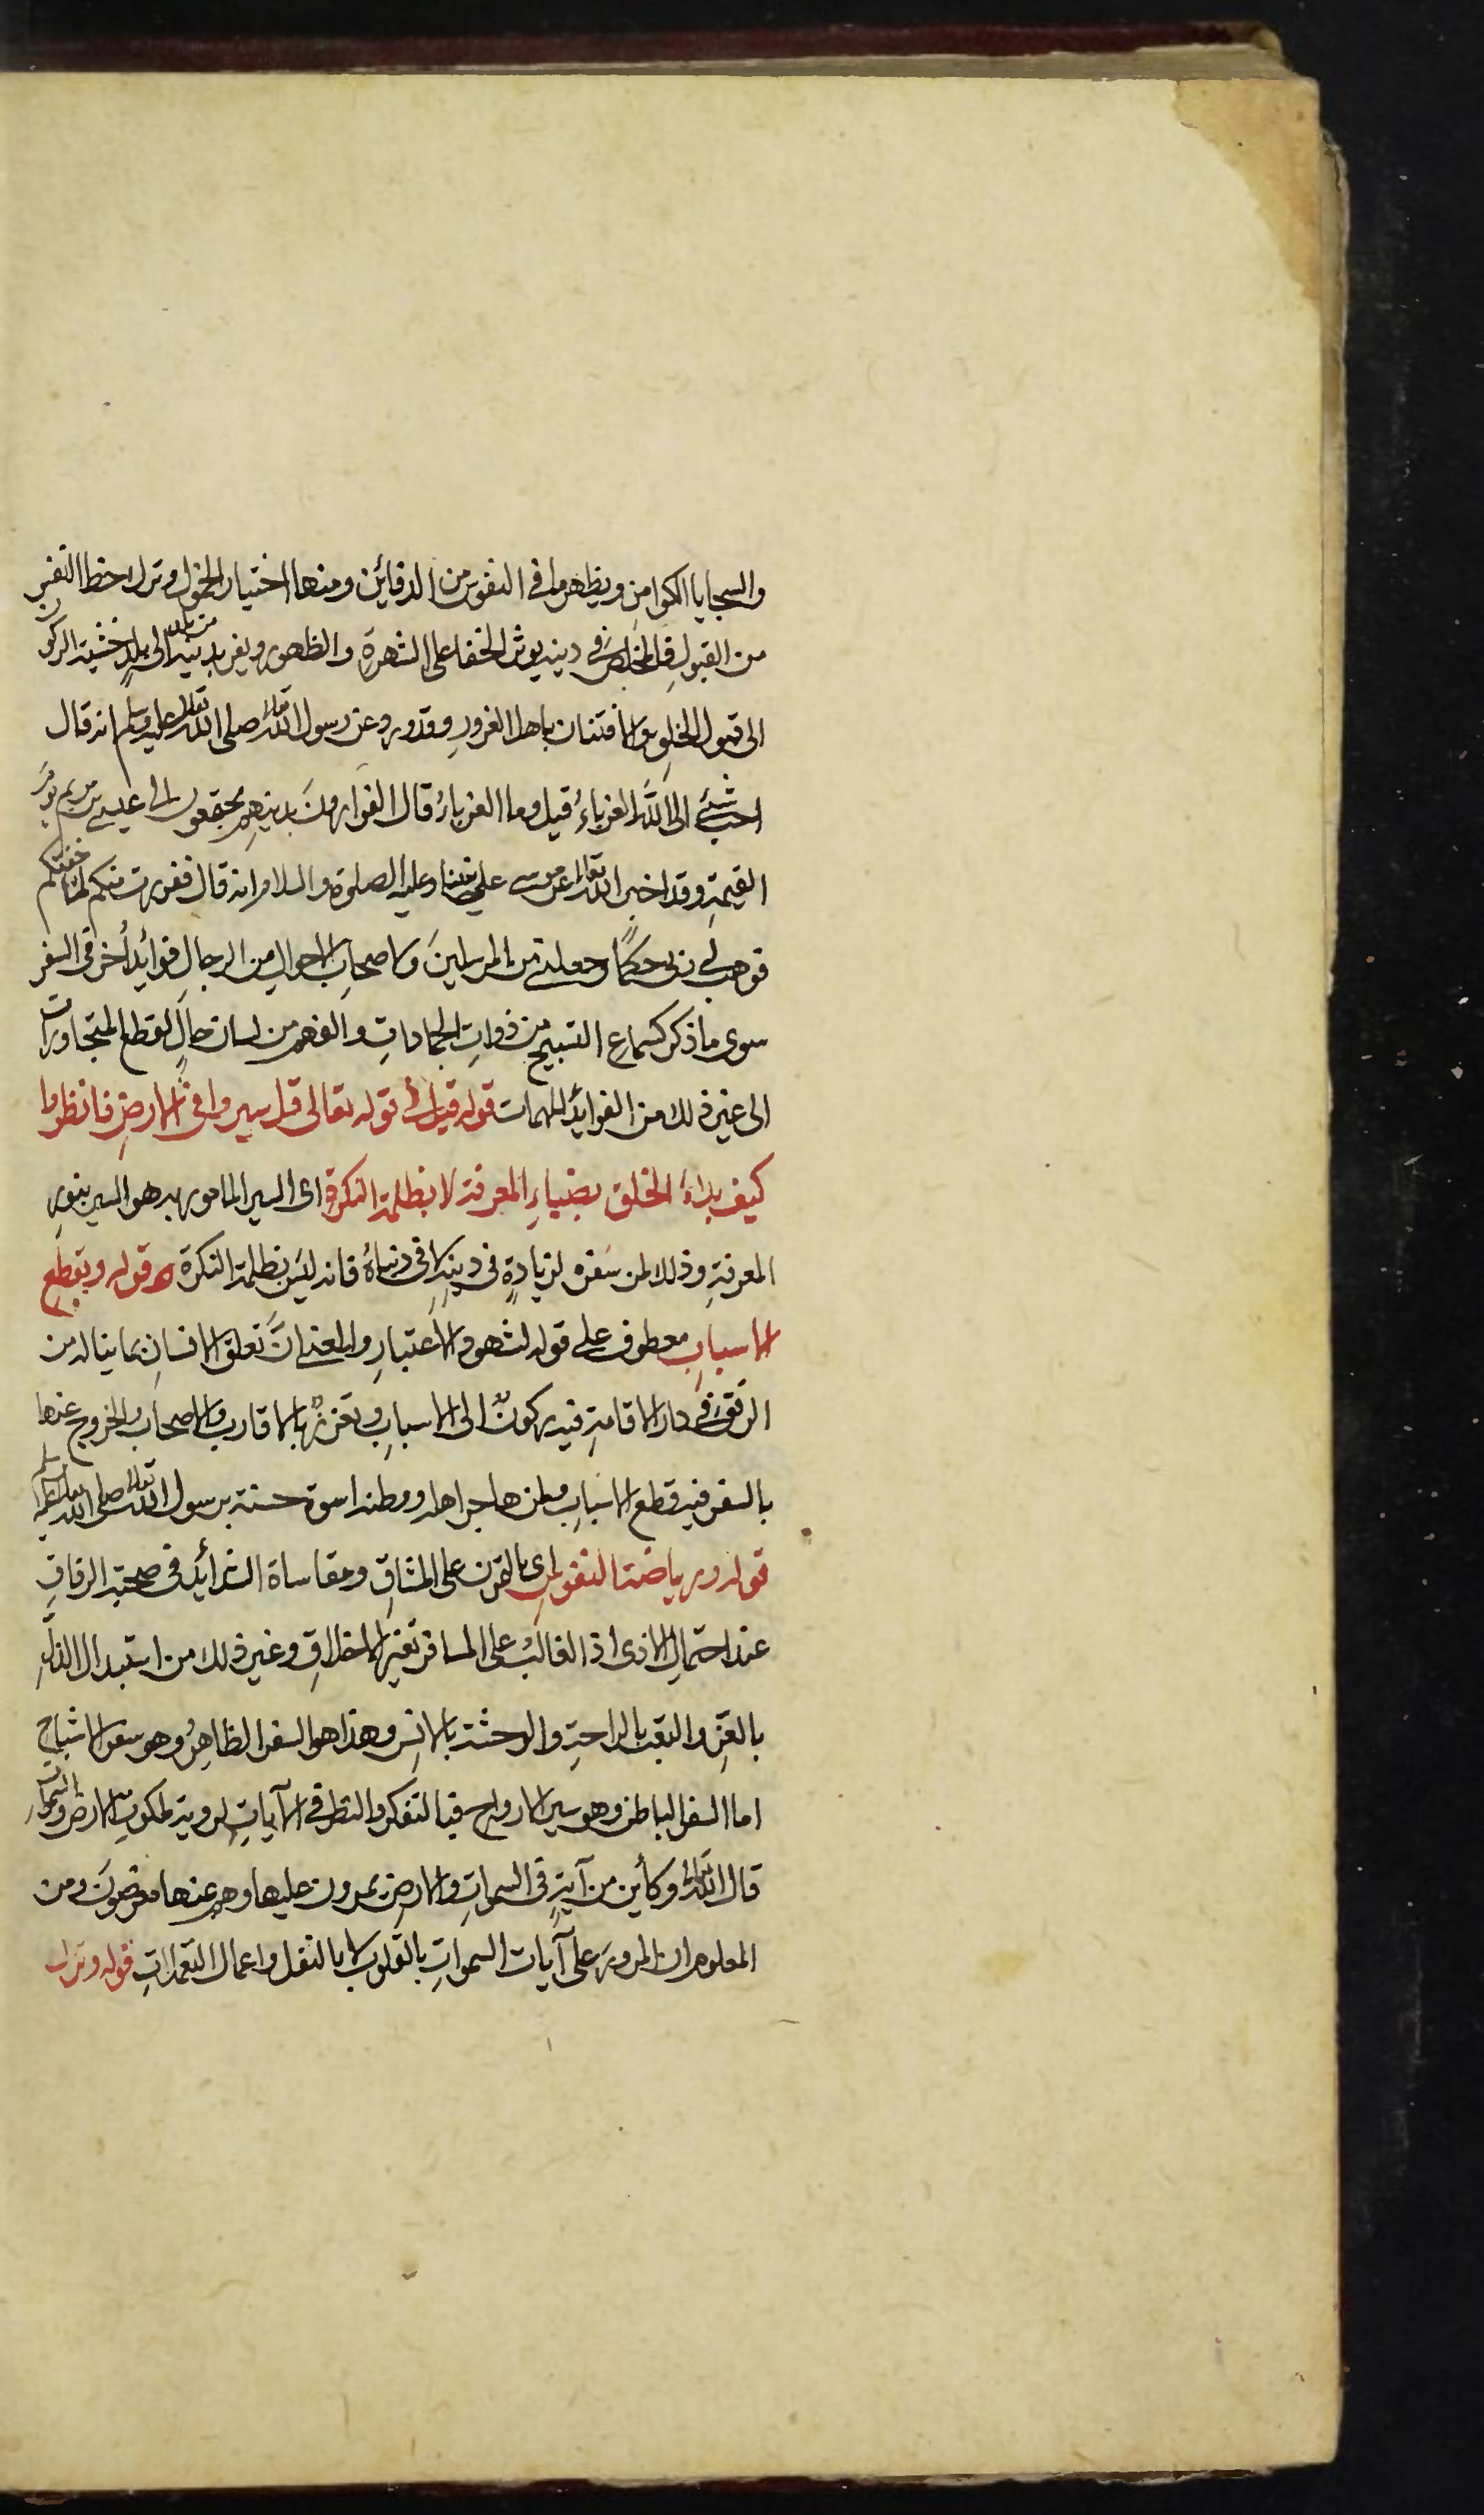 والسجايا الكوامن ويظهر ما في النفوس من الدفائن ومنها اختيار الخمول وترك حظ النفس
من القبول فالمخلص في دينه يوثر الخفا على الشهرة والظهور ويفر بدينه من بلد الى بلد خشية الركون
الى قبول الخلق والافتتان باهل الغرور وقد ورد عن رسول الله تعالى صلى الله تعالى عليه وسلم انه قال
احب شئ الى الله الغرباء قيل وما الغرباء قال الفرارون بدينهم يجتمعون الى عيسى بن مريم يوم
القيمة وقد اخبر الله تعالى عن موسى على نبينا وعليه الصلوة والسلام انه قال ففررت منكم لما خفتكم
فوهب لي ربى حكما وجعلنى من المرسلين ولاصحاب الاحوال من الرجال فوائد أخر فى السفر
سوى ما ذكر كسماع التسبيح من ذوات الجمادات والفهم من لسان حال القطع المتجاورات
الى غير ذلك من الفوائد المهمات قوله قيل فى قوله تعالى قل سيروا فى الارض فانظروا
كيف بدأ الخلق بضياء المعرفة لا بظلمة النكرة اى السير المامور به هو السير بنور
المعرفة وذلك لمن سفره لزيادة فى دينه لا فى دنياه فانه ليس بظلمة النكرة قوله وبقطع
الاسباب معطوف على قوله لشهود الاعتبار والمعنى ان تعلق الانسان بما يناله من
الرفق فى دار الاقامة فيه ركون الى الاسباب وتعزز بالاقارب والاصحاب والخروج عنها
بالسفر فيه قطع الاسباب ولمن هاجر اهله ووطنه اسوة حسنة برسول الله تعالى صلى الله تعالى عليه وسلم
قوله ورياضة النفوس اى بالتمرن على المشاق ومقاساة الشدائد فى صحبة الرفاق
عند احتمال الاذى اذ الغالب على المسافر تغير الاخلاق وغير ذلك من استبدال الذل
بالعز والتعب بالراحة والوحشة بالانس وهذا هو السفر الظاهر وهو سفر الاشباح
اما السفر الباطن وهو سير الارواح فبالتفكر والنظر فى الآيات لروية ملكوت الارض والسموات
قال الله تعالى وكأين من آية فى السموات والارض يمرون عليها وهم عنها معرضون ومن
المعلوم ان المرور على آيات السموات بالقلوب لا بالنقل واعمال القدمات قوله وترك